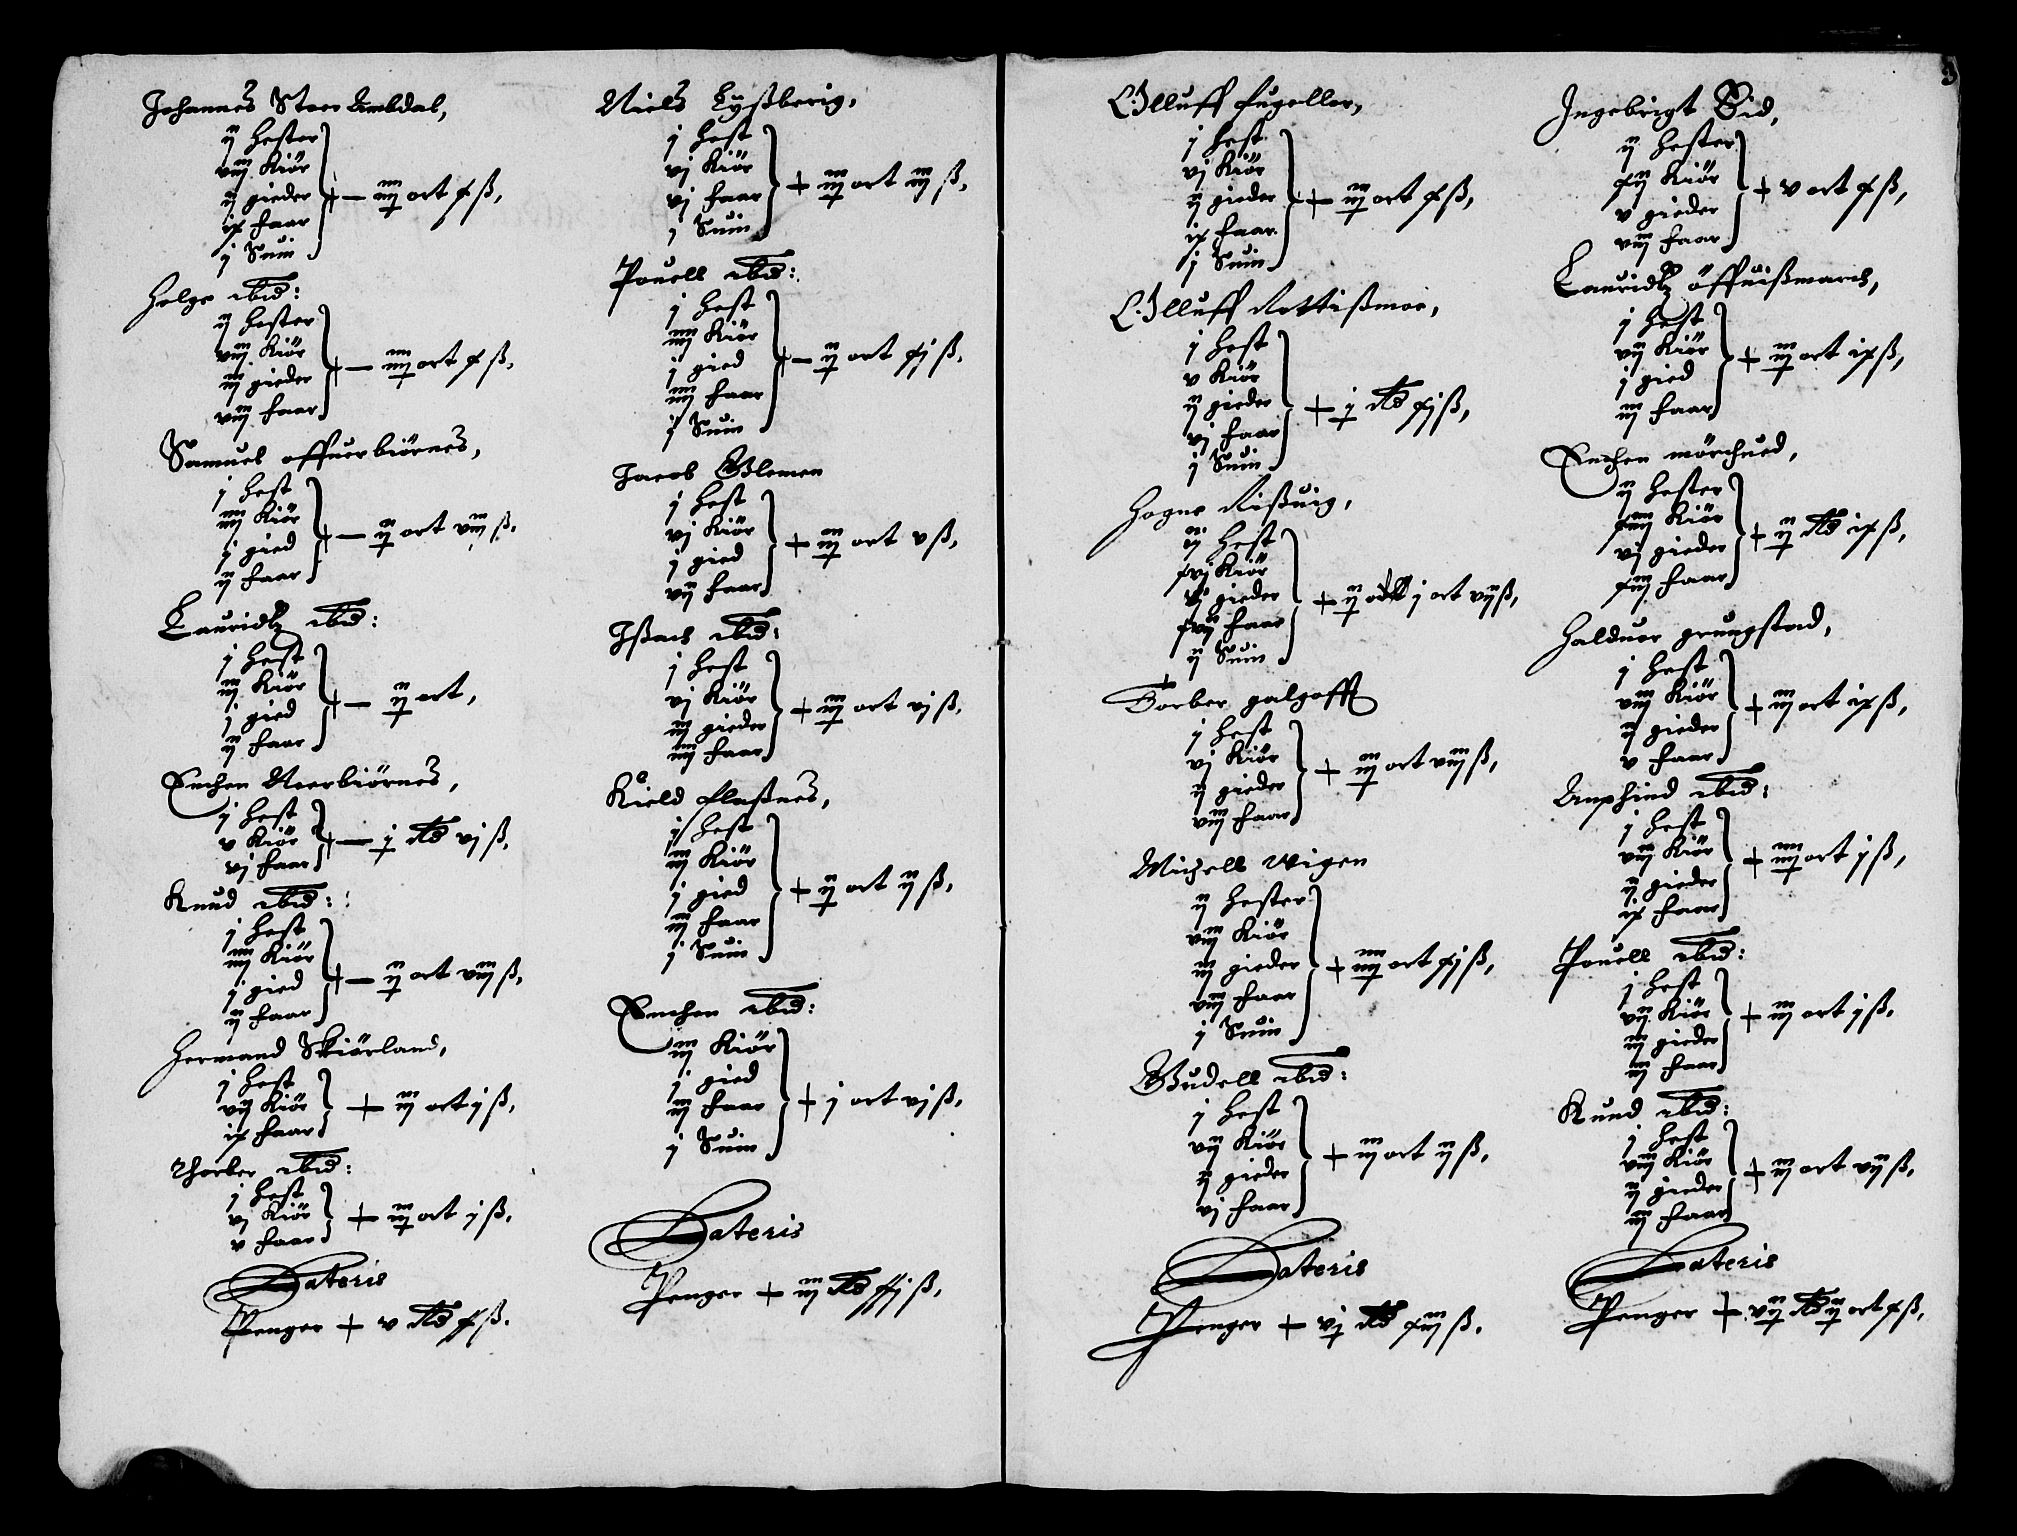 Johannes Stoer Ambdal,
ij hester
viij Kiör
ij gieder
ix faar
j Suin
+ — iiij ort x ß,
Helge ibid:
ij hester
viij Kiör
iij gieder
viij faar
+ — iiij ort x ß,
Samuel offuerbiörnes,
j hest
iiij Kiör
j gied
ij faar
+ — ij ort viij ß,
Lauridtz ibid:
j hest
iij Kiör
j gied
ij faar
+ — ij ort,
Suchen Neerbiörnes,
j hest
v Kiör
vj faar
+ — j Rd vj ß,
Knud ibid:
j hest
iiij Kiör
j gied
ij faar
+ — ij ort viij ß,
Hermand Skiörland,
j hest
vij Kiör
ix faar
+ iij ort j ß,
Thorber ibid:
j hest
vj Kiör
v faar
+ iij ort j ß,
Lateris
Penger + v Rd x ß.
Niels Lyßberig,
j hest
vj Kiör
vj faar
j Suin
+ iij ort iij ß,
Pouell ibid:
j hest
iiij Kiör
j gied
iiij faar
j Suin
+ — ij ort xj ß,
Jacob Blemen
j hest
vj Kiör
j gied
vij faar
+ iij ort v ß,
Jßach ibid:
j hest
vj Kiör
iij gieder
iiij faar
+ iij ort vj ß,
Kield flaßnes,
j hest
iij Kiör
j gied
iij faar
j Suin
+ ij ort ij ß,
Suchen ibid:
iij Kiör
j gied
iij faar
j Suin
+ j ort vj ß,
Lateris
Penger + iij Rd xxj ß,
Olluff fugeller,
j hest
vj Kiör
ij gieder
ix faar
j Suin
+ iij ort x ß,
Olluff Rottißmoe,
j hest
v Kiör
ij gieder
vj faar
j Suin
+ j Rd xj ß,
Hogne Rißuig,
ij hest
xvj Kiör
vj gieder
xvij faar
ij Suin
+ ij j ort vij ß,
Torber galgofft
j hest
vj Kiör
ij gieder
viij faar
+ iij ort viij ß,
Michell wigen
ij hester
viij Kiör
iij gieder
viij faar
j Suin
+ iiij ort xj ß,
Budell ibid:
j hest
vij Kiör
ij gieder
vj faar
+ iij ort ij ß,
Lateris
Penger + vj Rd xiij ß.
3
Ingebrigt Eid,
ij hester
xij Kiör
v gieder
viij faar
+ v ort x ß,
Lauridtz öffuißmarch,
j hest
vij Kiör
j gied
iij faar
+ iij ort ix ß,
Suchen mörchued,
ij hester
xiiij Kiör
vj gieder
xiij faar
+ ij Rd ix ß,
Halduor grungstad,
j hest
viij Kiör
ij gieder
v faar
+ iij ort ix ß,
Amphind ibid:
j hest
viij Kiör
ij gieder
ix faar
+ iiij ort j ß,
Pouell ibid:
j hest
vij Kiör
iij gieder
iij faar
+ iij ort j ß,
Knud ibid:
j hest
viij Kiör
ij gieder
iij faar
+ iij ort vij ß,
Lateris
Penger + vij Rd ij ort x ß,